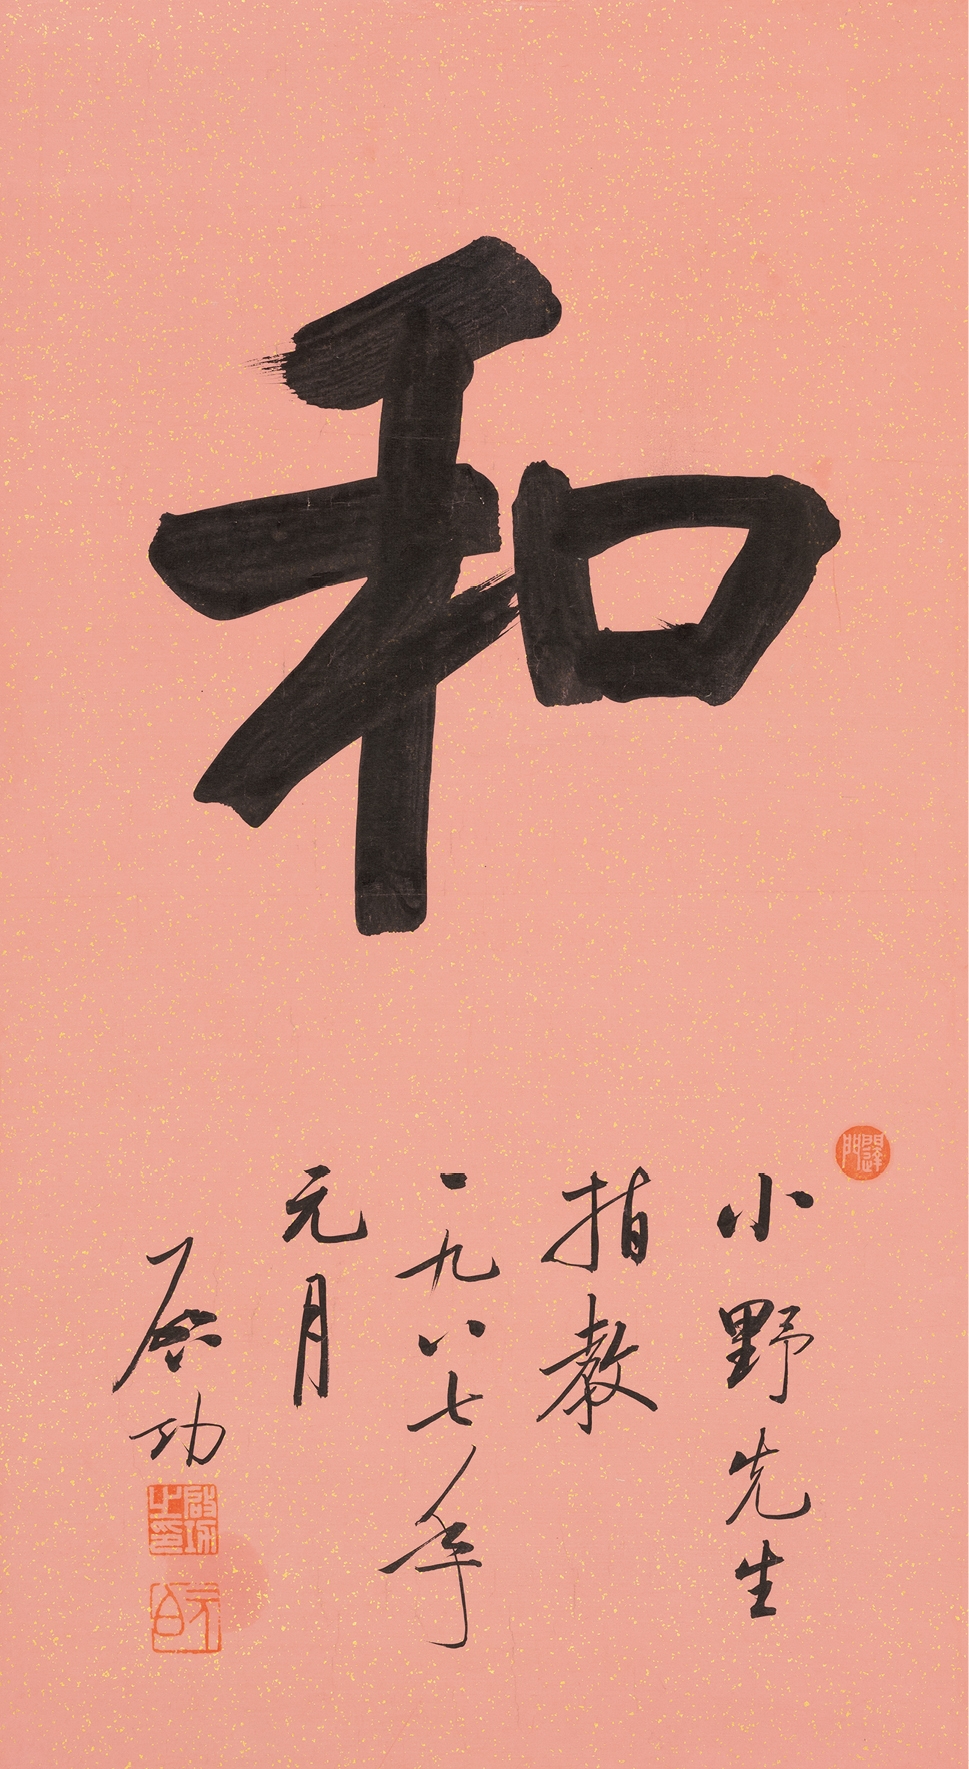 和
小野先生
指教
一九八七年
元月
启功
啟功之印
元白